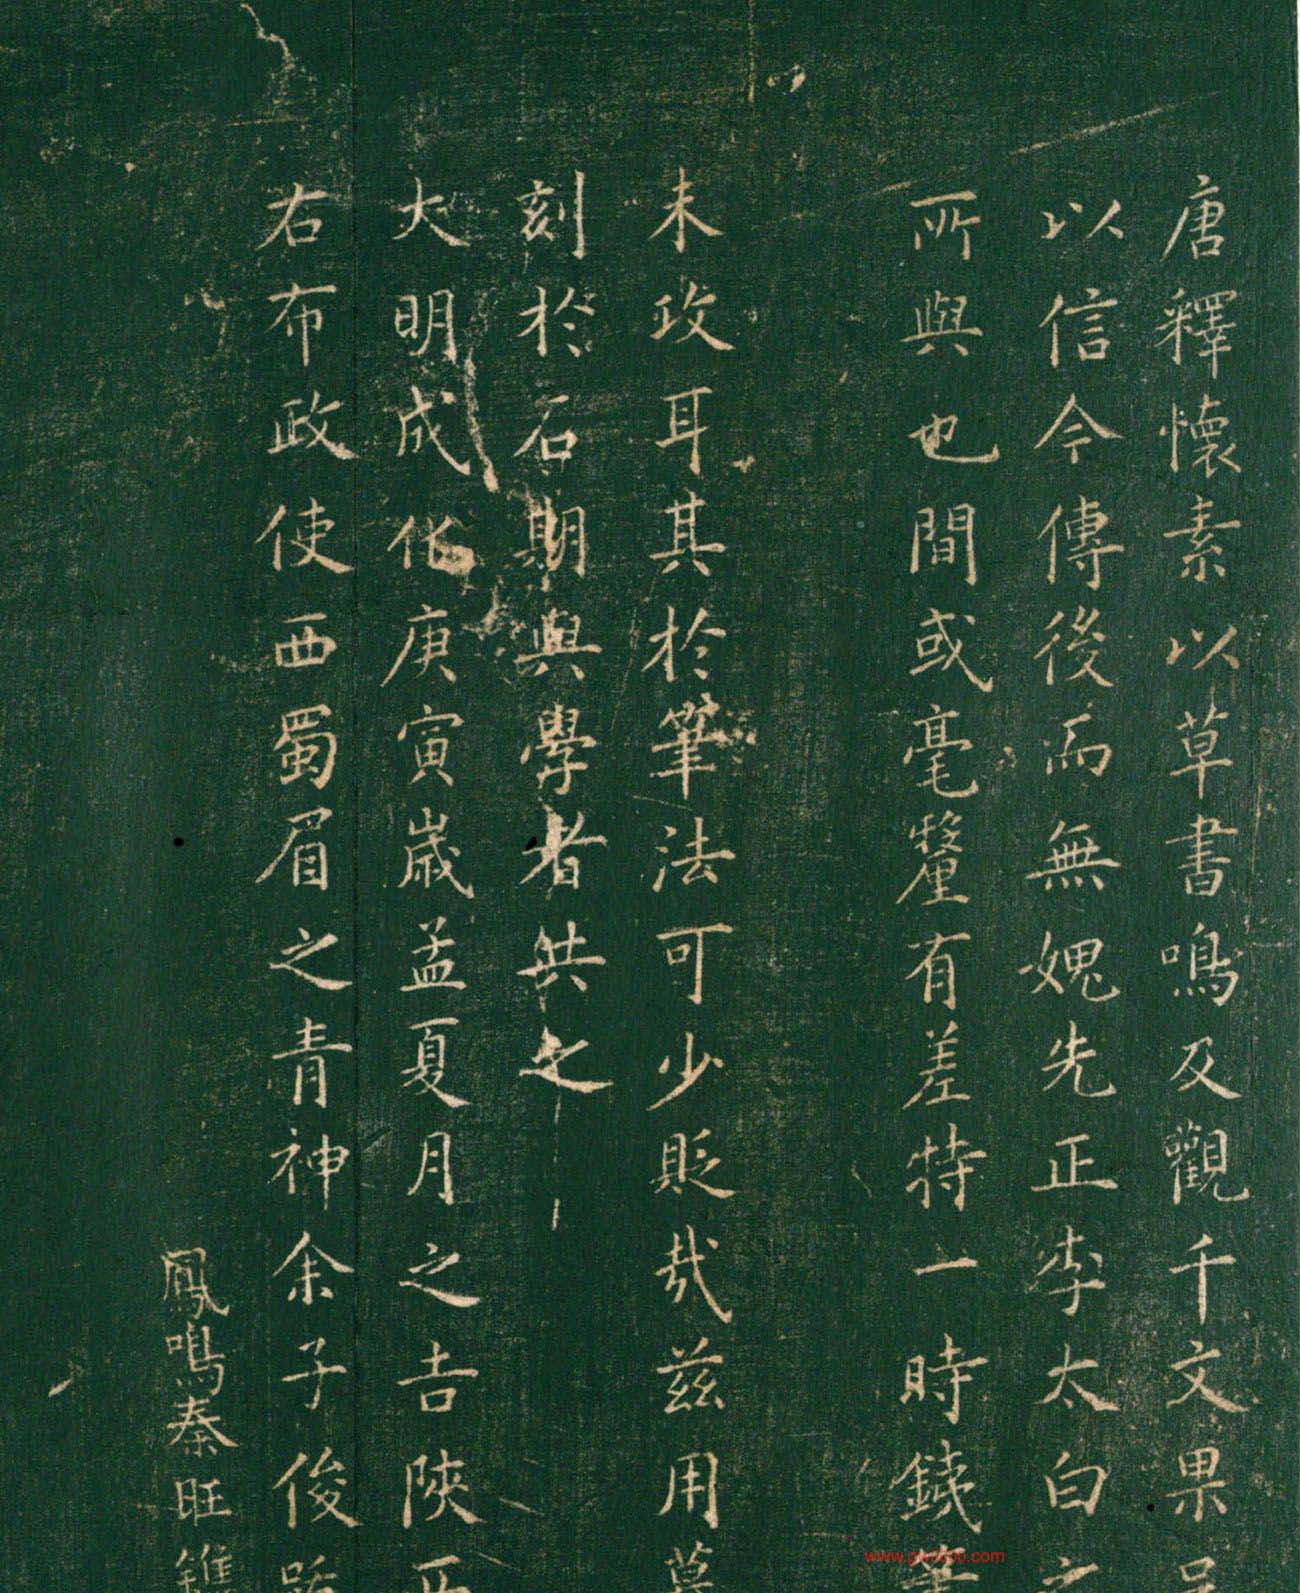 唐釋懷素以草書鳴及觀千文果
以信今傳後而無媿先正李太白
所與也間或毫釐有差特一時鐫
未攻耳其於筆法可少貶哉茲用
刻於石期與學者共之
大明成化庚寅歲孟夏月之吉陝
右布政使西蜀眉之青神余子俊
鳳鳴秦旺